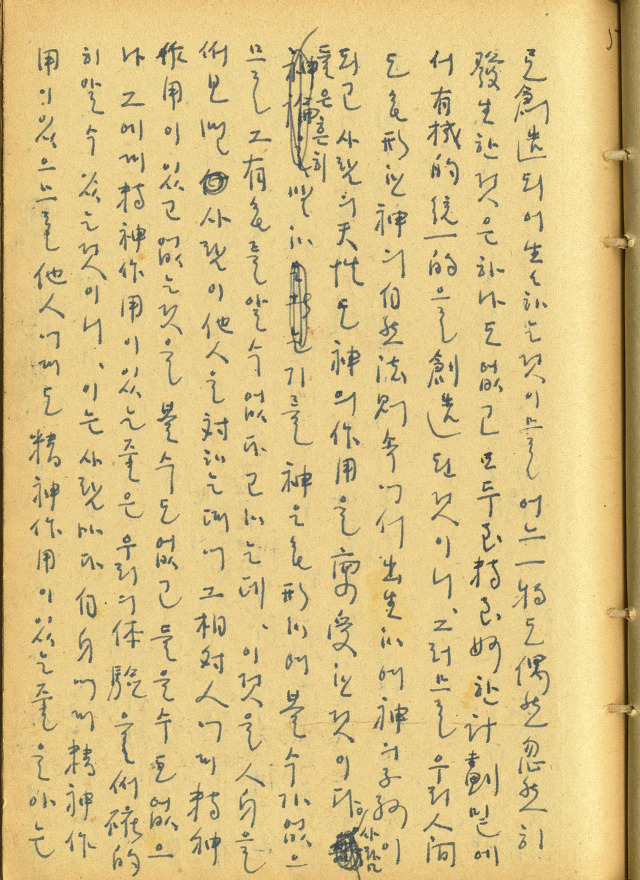 도 創造되어 生生하는 것이므로 어느 一物도 偶然 忽然히
發生한 것은 하나도 없고 모두 至精至妙한 計劃 밑에
서 有機的 統一的으로 創造된 것이니, 그러므로 우리 人間
도 無形한 神의 自然法則 속에서 出生하여 神의 子孫이
되고 사람의 天性도 神의 作用을 稟受한 것이다. 사람
들은 흔히 말하기를 神은 無形하여 볼 수가 없으
므로 그 有無를 알 수 없다고 하는데, 이것을 人身을
보면 사람이 他人을 対하는데에 그 相対人에게 精神
作用이 있고 없는 것을 볼 수도 없고 들을 수도 없으
나 그에게 精神作用이 있는 줄은 우리의 体験을 的
히 알 수 있는 것이니, 이는 사람마다 自身에게 精神作
用이 있으므로 他人에게도 精神作用이 있는 줄을 아는